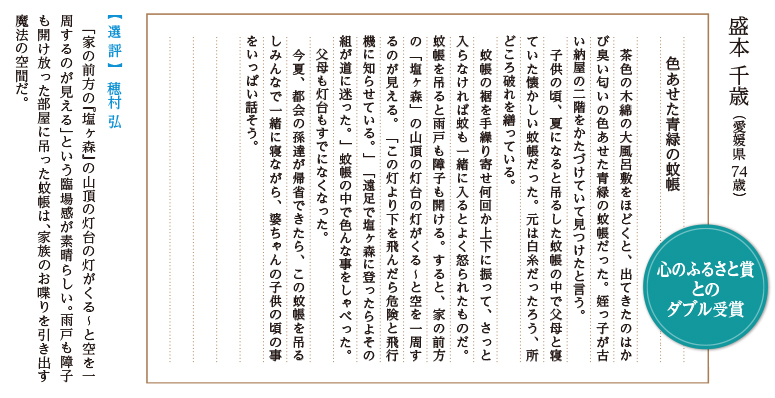 盛本 千歳（愛媛県 74歳）
色あせた青緑の蚊帳
茶色の木綿の大風呂敷をほどくと、出てきたのはか
び臭い匂いの色あせた青緑の蚊帳だった。姪っ子が古
い納屋の二階をかたづけていて見つけたと言う。
子供の頃、夏になると吊るした蚊帳の中で父母と寝
ていた懐かしい蚊帳だった。元は白糸だったろう、所
どころ破れを繕っている。
蚊帳の裾を手繰り寄せ何回か上下に振って、さっと
入らなければ蚊も一緒に入るとよく怒られたものだ。
蚊帳を吊ると雨戸も障子も開ける。すると、家の前方
の「塩ヶ森」の山頂の灯台の灯がくる～と空を一周す
るのが見える。「この灯より下を飛んだら危険と飛行
機に知らせている。」「遠足で塩ヶ森に登ったらよその
組が道に迷った。」蚊帳の中で色んな事をしゃべった。
父母も灯台もすでになくなった。
今夏、都会の孫達が帰省できたら、この蚊帳を吊る
しみんなで一緒に寝ながら、婆ちゃんの子供の頃の事
をいっぱい話そう。
心のふるさと賞
との
ダブル受賞
【選評】 穂村 弘
「家の前方の『塩ヶ森』の山頂の灯台の灯がくる～と空を一
周するのが見える」という臨場感が素晴らしい。雨戸も障子
も開け放った部屋に吊った蚊帳は、家族のお喋りを引き出す
魔法の空間だ。